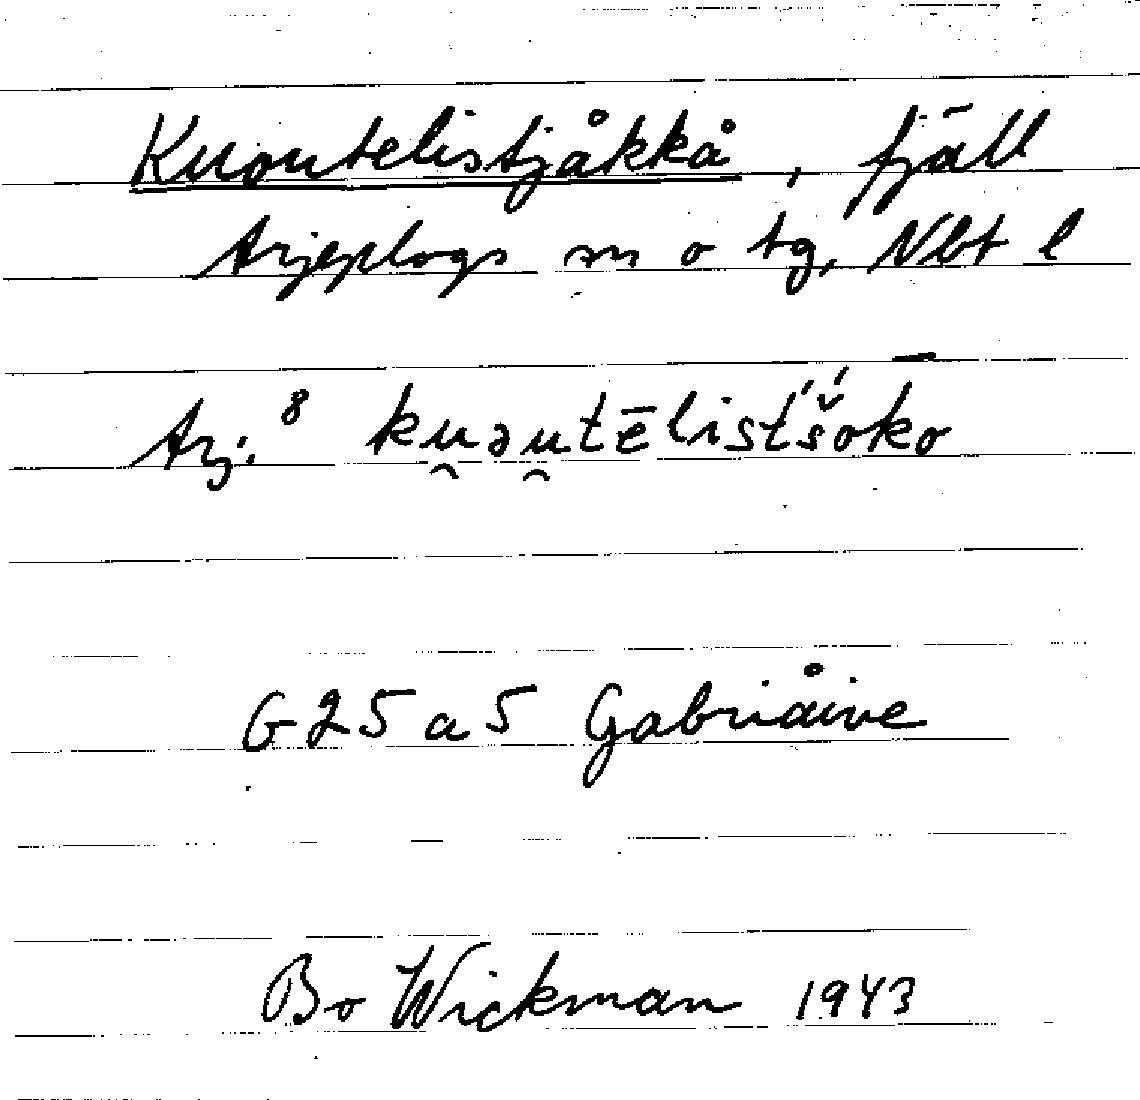 Kuoutelistjåkkå, fjäll
Arjeplogs sn o tg, Nbt l
Arj.⁸ ku̯əu̯tēlist́š́oko
G25a5 Gabriåive
Bo Wickman 1943